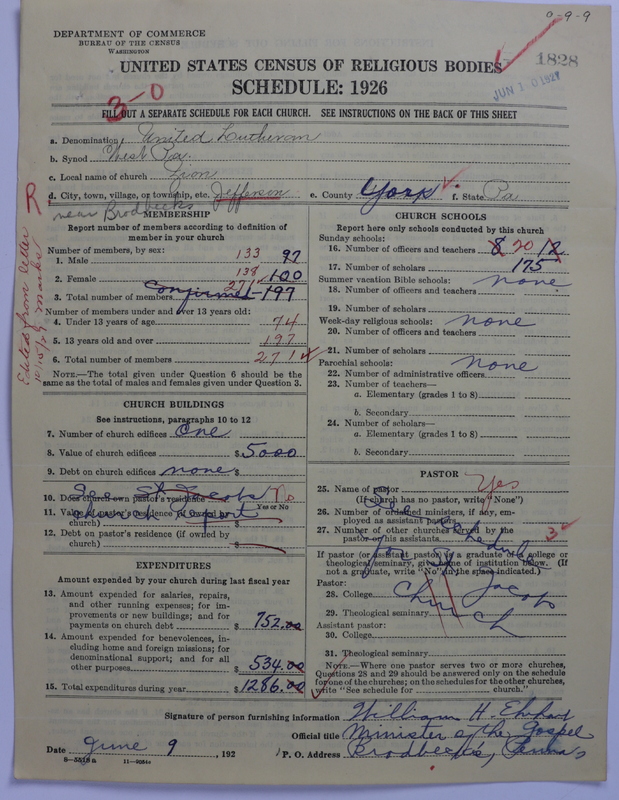 0-9-9
DEPARTMENT OF COMMERCE
BUREAU OF THE CENSUS
WASHINGTON
1828
JUN 10 1927
UNITED STATES CENSUS OF RELIGIOUS BODIES
SCHEDULE: 1926
3-0
FILL OUT A SEPARATE SCHEDULE FOR EACH CHURCH. SEE INSTRUCTIONS ON THE BACK OF THIS SHEET
a. Denomination United Lautheran
b. Synod West Pa.
c. Local name of church Zion
d. City, town, village, or township, etc. Jefferson e. County York f. State Pa
near Brodbecks
R
Edited from letter
MEMBERSHIP
Report number of members according to definition of
member in your church
Number of members, by sex:
1. Male 133 97
2. Female 138 100
3. Total number of members 271 Confirmed 197
Number of members under and over 13 years old:
4. Under 13 years of age 74
5. 13 years old and over 197
6. Total number of members 271
NOTE.—The total given under Question 6 should be the
same as the total of males and females given under Question 3.
CHURCH BUILDINGS
See instructions, paragraphs 10 to 12
7. Number of church edifices One
8. Value of church edifices $5000
9. Debt on church edifices none $
10. Does church own pastor's residence No
Yes or No
See St Jacobs
church Report
11. Value of pastor's residence (if owned by
church) $
12. Debt on pastor's residence (if owned by
church) $
EXPENDITURES
Amount expended by your church during last fiscal year
13. Amount expended for salaries, repairs,
and other running expenses; for im-
provements or new buildings; and for
payments on church debt $ 752.00
14. Amount expended for benevolences, in-
cluding home and foreign missions; for
denominational support; and for all
other purposes $ 534.00
15. Total expenditures during year $ 1286.00
CHURCH SCHOOLS
Report here only schools conducted by this church
Sunday schools:
16. Number of officers and teachers 8 20 12
17. Number of scholars 175
Summer vacation Bible schools: none
18. Number of officers and teachers
19. Number of scholars
Week-day religious schools: none
20. Number of officers and teachers
21. Number of scholars
Parochial schools: none
22. Number of administrative officers
23. Number of teachers—
a. Elementary (grades 1 to 8)
b. Secondary
24. Number of scholars—
a. Elementary (grades 1 to 8)
b. Secondary
PASTOR
25. Name of pastor Yes
(If church has no pastor, write "None")
26. Number of ordained ministers, if any, em-
ployed as assistant pastors
27. Number of other churches served by the
pastor or his assistants 3
See Schedule
for St Jacobs
Church
If pastor (or assistant pastor) is a graduate of a college or
theological seminary, give name of institution below. (If
not a graduate, write "No" in the space indicated.)
Pastor:
28. College
29. Theological seminary
Assistant pastor:
30. College
31. Theological seminary
NOTE.—Where one pastor serves two or more churches,
Questions 28 and 29 should be answered only on the schedule
for one of the churches; on the schedules for the other churches,
write "See schedule for church."
Signature of person furnishing information William H. Ehrhart
Official title Minister of the Gospel
Date June 9, 192 P. O. Address Brodbecks, Penna
8-5518 a 11-9264